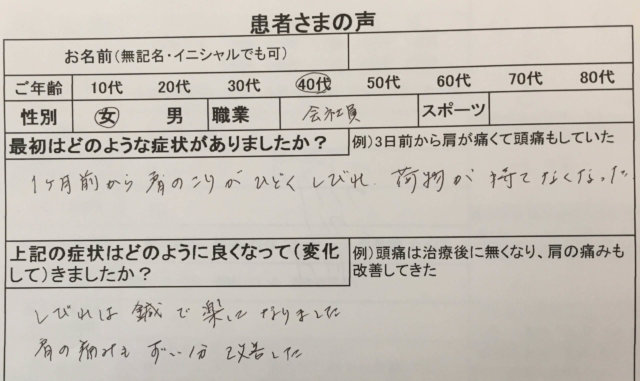 患者さまの声
お名前(無記名・イニシャルでも可)
ご年齢 10代 20代 30代 40代 50代 60代 70代 80代
性別 女 男 職業 会社員 スポーツ
最初はどのような症状がありましたか? 例)3日前から肩が痛くて頭痛もしていた
1ヶ月前から肩のこりがひどくしびれ、荷物が持てなくなった
上記の症状はどのように良くなって(変化 例)頭痛は治療後に無くなり、肩の痛みも
して)きましたか? 改善してきた
しびれは鍼で楽になりました
肩の痛みもずい分改善した